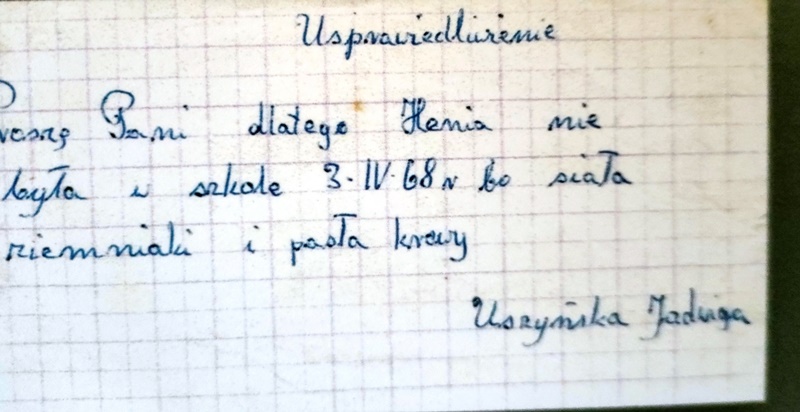 Usprawiedliwienie
Proszę Pani dlatego Henia nie
była w szkole 3.IV.68r bo siała
ziemniaki i pasła krowy
Uszyńska Jadwiga